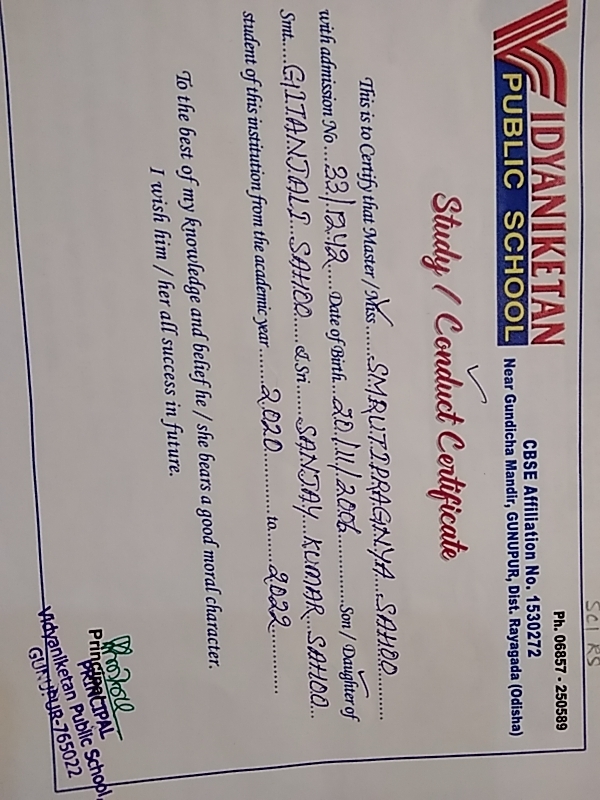 SCI RS
Ph. 06857 - 250589
VIDYANIKETAN
PUBLIC SCHOOL
CBSE Affiliation No. 1530272
Near Gundicha Mandir, GUNUPUR, Dist. Rayagada (Odisha)
Study / Conduct Certificate
This is to Certify that Master / Miss......SMRUTIPRAGNYA...SAHOO......
with admission No....33/1242....Date of Birth...20/11/2006............Son / Daughter of
Smt.....GITANJALI...SAHOO.....& Sri......SANJAY...KUMAR...SAHOO...
student of this institution from the academic year......2020..........to......2022............
To the best of my knowledge and belief he / she bears a good moral character.
I wish him / her all success in future.
Principal
PRINCIPAL
Vidyaniketan Public School,
GUNUPUR-765022